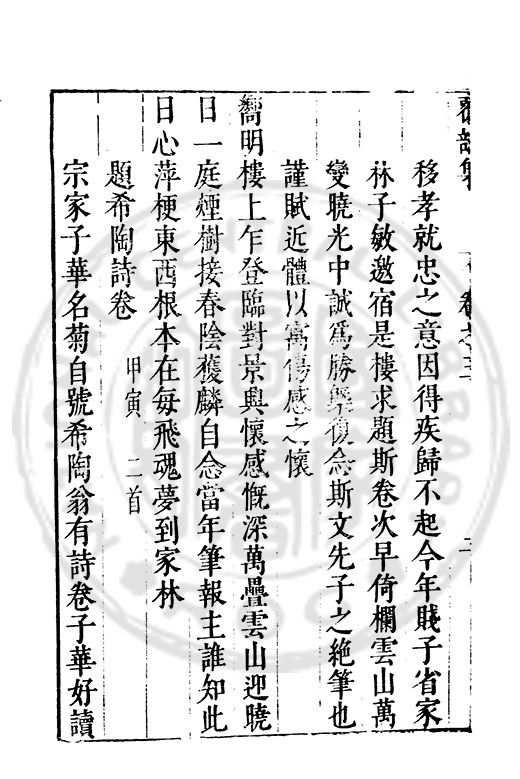 覆瓿集
卷之三
二
移孝就忠之意因得疾歸不起今年賤子省家
林子敏邀宿是樓求題斯卷次早倚欄雲山萬
變曉光中誠爲勝槩復念斯文先子之絶筆也
謹賦近體以寓傷感之懷
嚮明樓上乍登臨對景興懷感慨深萬疊雲山迎曉
日一庭煙樹接春陰獲麟自念當年筆報主誰知此
日心萍梗東西根本在每飛魂夢到家林
題希陶詩卷 甲寅 二首
宗家子華名菊自號希陶翁有詩卷子華好讀